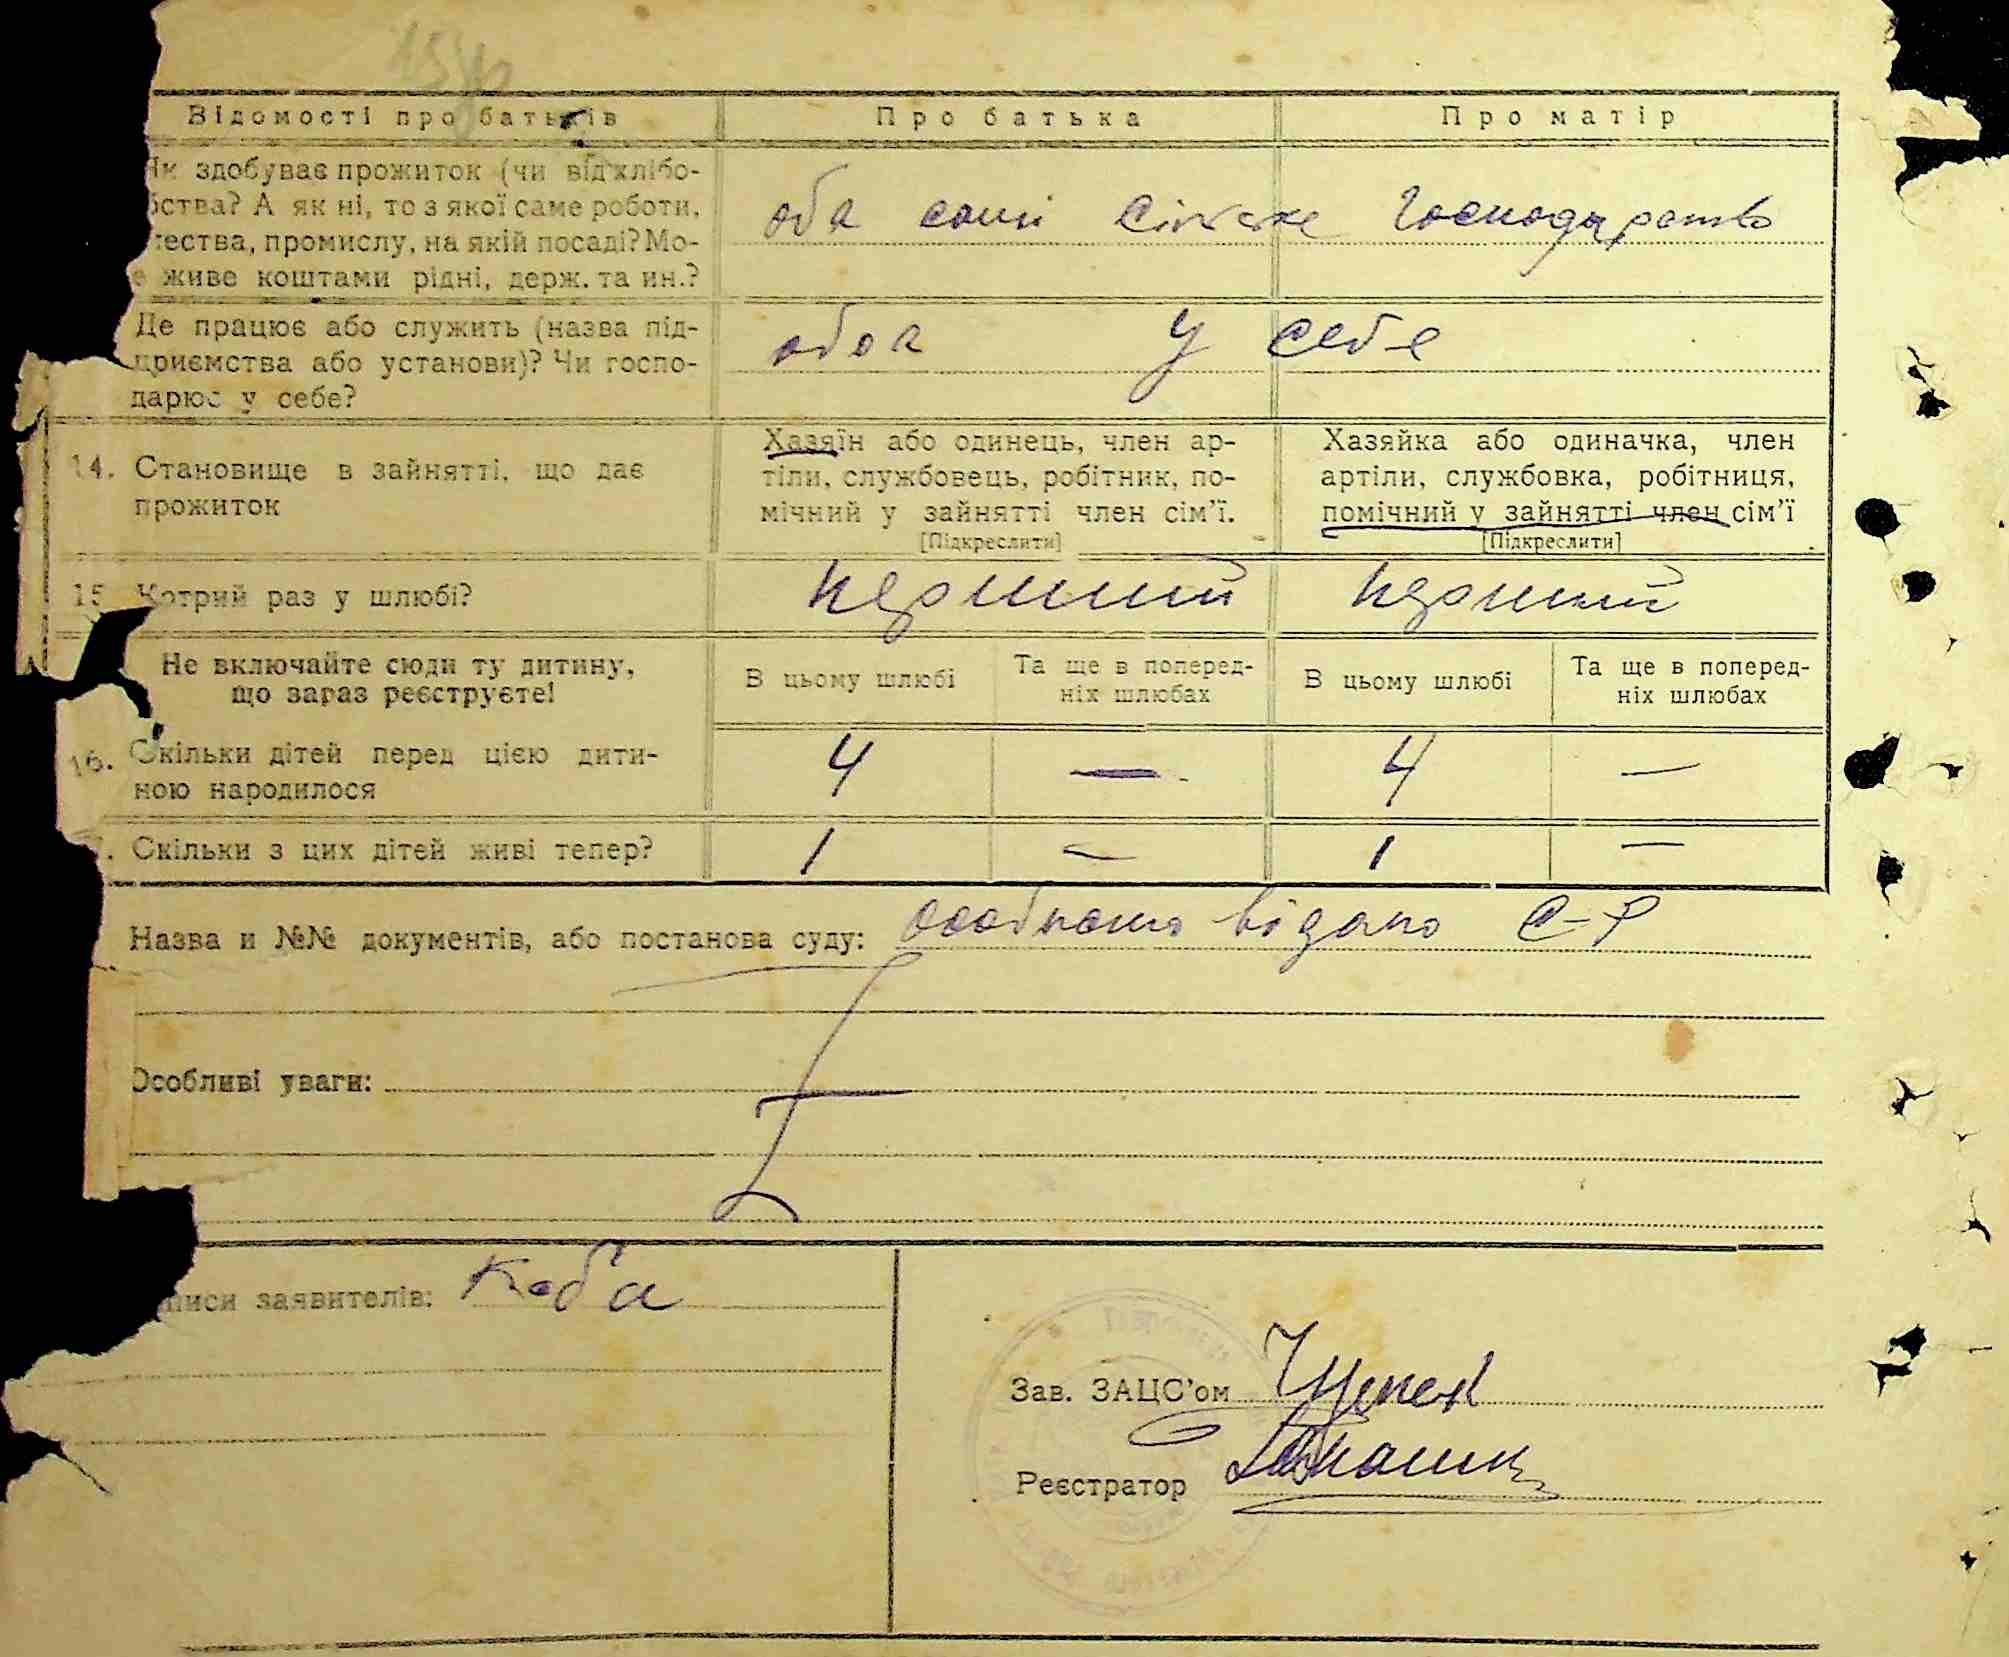 Відомості про батьків
Про батька
Про матір
Як здобуває прожиток (чи від хлібо-
бства? А як ні, то з якої саме роботи,
ества, промислу, на якій посаді? Мо-
е живе коштами рідні, держ. та ин.?
оба сами сільське господарство
Де працює або служить (назва під-
приємства або установи)? Чи госпо-
дарює у себе?
обоє у себе
14. Становище в зайнятті, що дає
прожиток
Хазяїн або одинець, член ар-
тіли, службовець, робітник, по-
мічний у зайнятті член сім'ї.
[Підкреслити]
Хазяйка або одиначка, член
артіли, службовка, робітниця,
помічний у зайнятті член сім'ї
[Підкреслити]
15 Котрий раз у шлюбі?
перший
перший
Не включайте сюди ту дитину,
що зараз реєструєте!
В цьому шлюбі
Та ще в поперед-
ніх шлюбах
В цьому шлюбі
Та ще в поперед-
ніх шлюбах
16. Скільки дітей перед цією дити-
ною народилося
4 — 4 —
. Скільки з цих дітей живі тепер?
1 — 1 —
Назва и №№ документів, або постанова суду: особисто відано С-Р
Особливі уваги:
писи заявителів: Коба
Зав. ЗАЦС'ом
Реєстратор